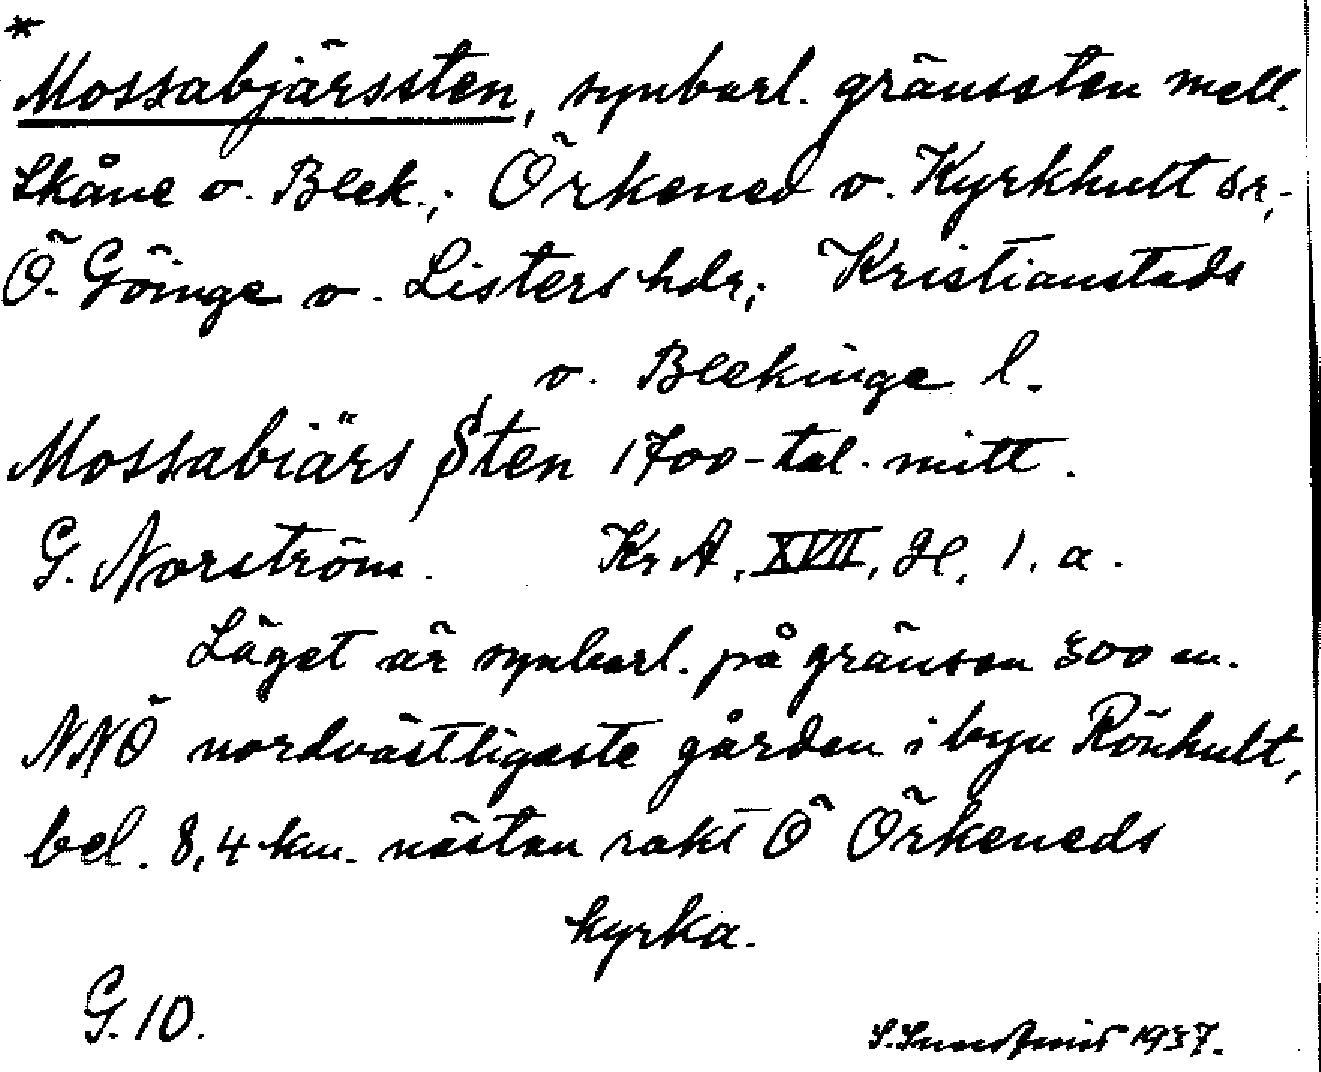 *
Mossabjärssten, synbarl. gränssten mell.
Skåne o. Blek.; Örkened o. Kyrkhult sr,
Ö. Göinge o. Listers hdr; Kristianstads
o. Blekinge l.
Mossabiärs Sten 1700-tal. mitt.
G. Norström. KrA, XVII, H, 1. a.
Läget är synbarl. på gränsen 500 m.
NNÖ nordvästligaste gården i byn Rönhult,
bel. 8,4 km. nästan rakt Ö Örkeneds
kyrka.
G. 10.
S. Sundqvist 1937.